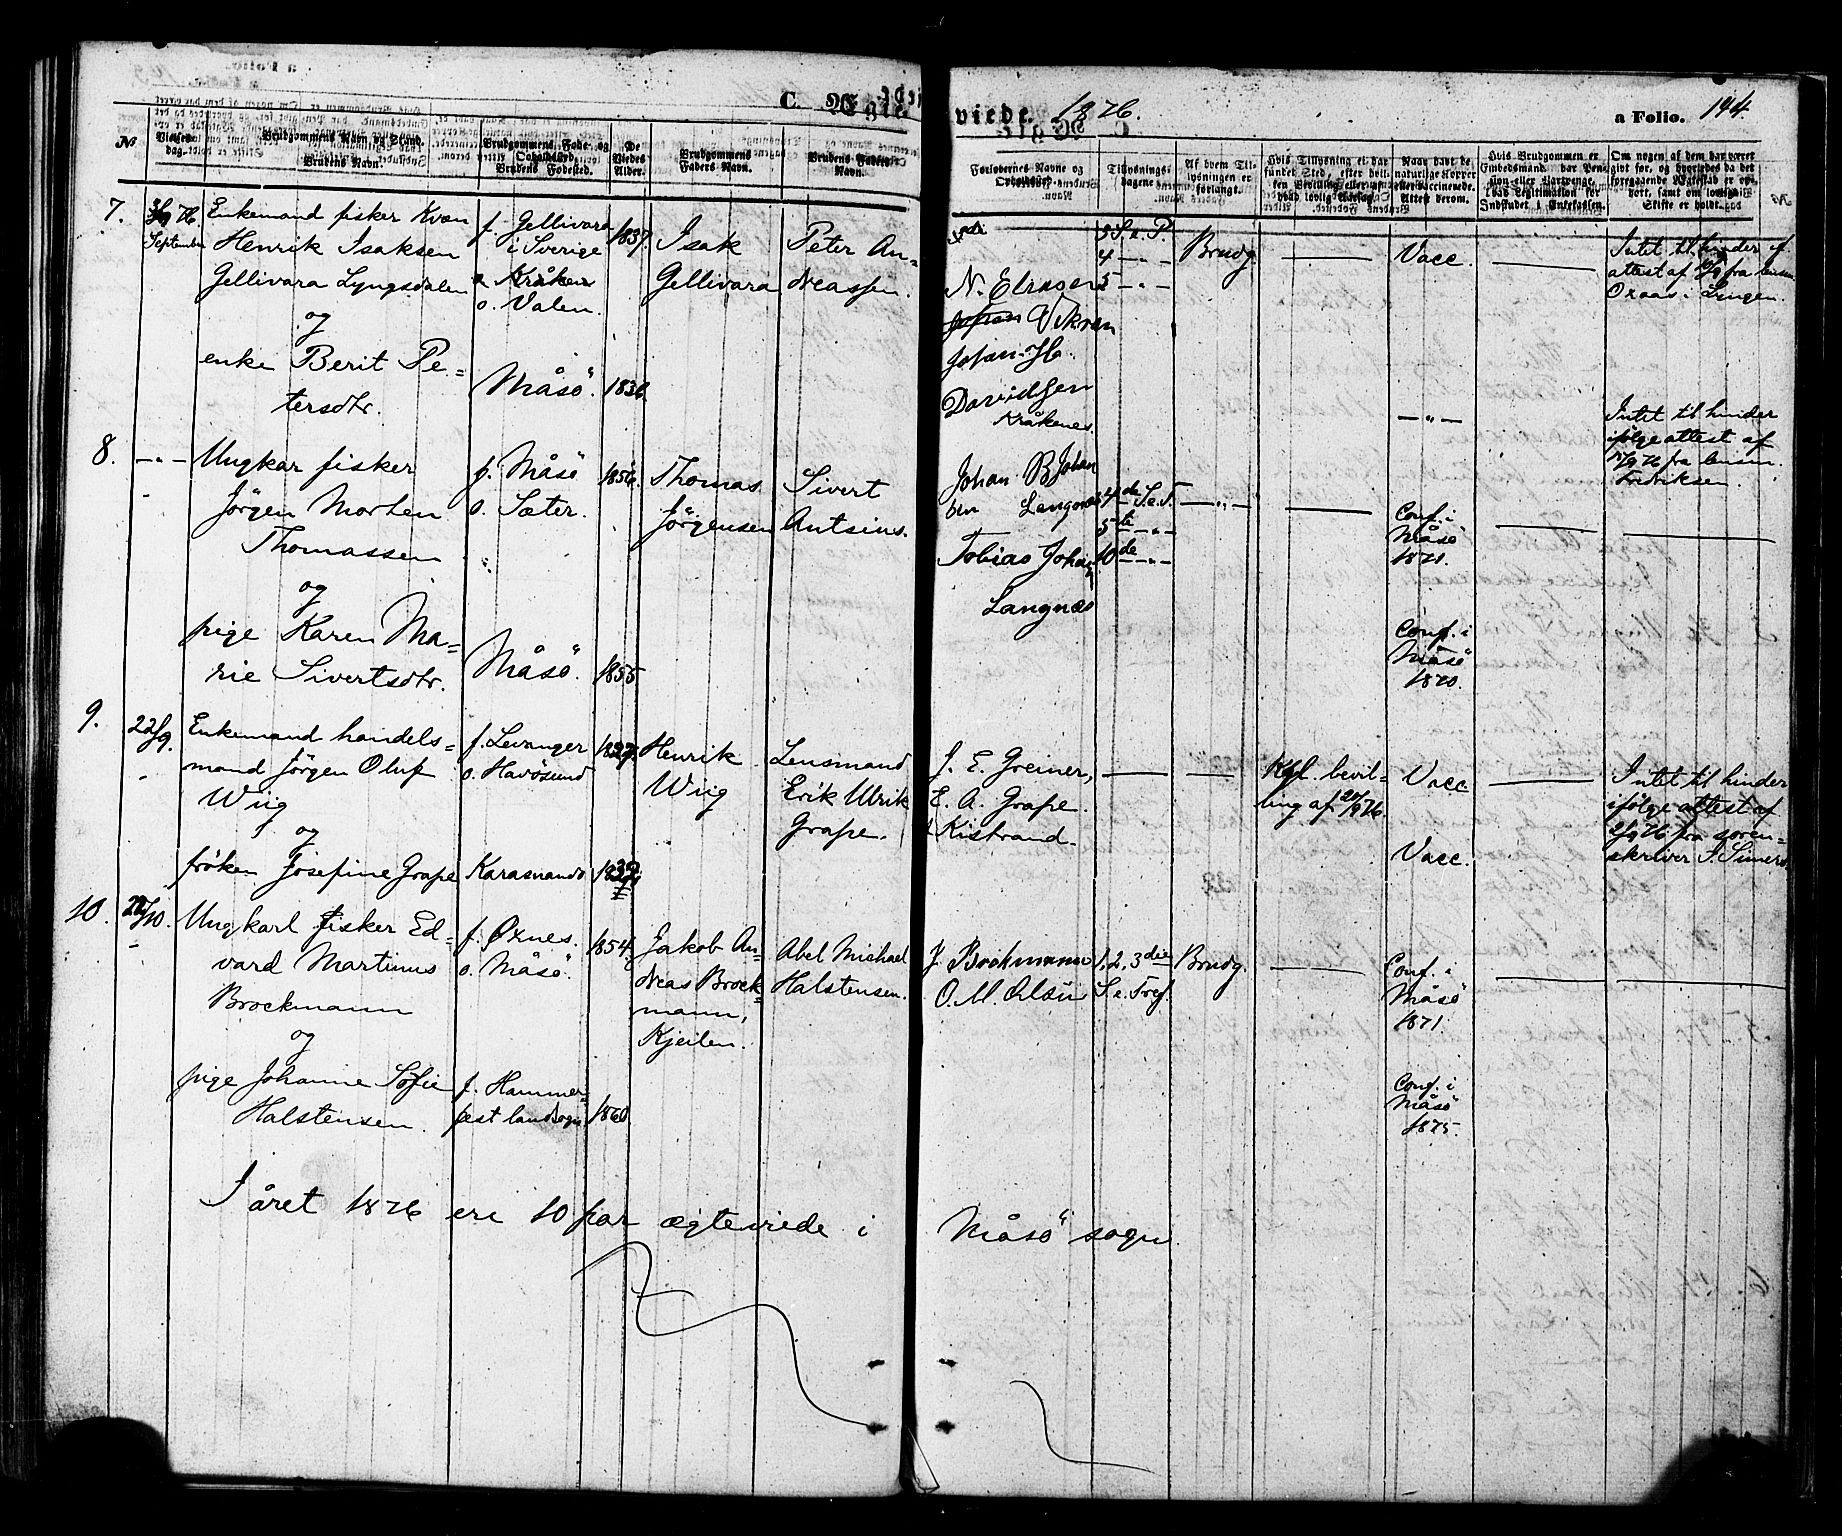 C. Ægte-
viede. 1876.
a Folio. 144.
No
Vielses-
dag.
Brudgommens Navn og Stand.
Brudens Navn.
Brudgommens Føde- og
Opholdsted.
Brudens Fødested.
De
Viedes
Alder.
Brudgommens
Faders Navn.
Brudens Faders
Navn.
Forlovernes Navne og
Opholdssted.
Tillysnings-
dagene.
Af hvem Til-
lysningen er
forlangt.
Hvis Tillysning ei har
fundet Sted, efter hvil-
ken Bevilling eller af
hvad lovlig Aarsag.
Naar havt de
naturlige Kopper
eller vaccinerede.
Attest derom.
Hvis Brudgommen er
Embedsmand, har Pen-
sion eller Vartpenge,
hvad Legitimation for
Indskudet i Enkekassen.
Om nogen af dem har været
gift før, og hvorledes da det
foregaaende Ægteskab er op-
hørt, samt om lovligt
Skifte er holdt.
7.
September
Enkemand fisker Kvæn
Henrik Isaksen
Gellivara Lyngsdalen
og
enke Berit Pe-
tersdtr.
f. Gellivara
i Sverige
o. Valen.
Måsö
1837.
1836
Isak
Gellivara
Peter An-
dreassen.
Johan H.
Davidsen
Kråkenes.
5 S. e. P.
4 — „ —
5 — „ —
Brudg.
Vacc.
— „ —
Intet til hinder if.
attest af fra lensm.
i Lyngen.
Intet til hinder
ifølge attest af
fra lensm.
Fredriksen.
8.
— „ —
Ungkar fisker
Jörgen Morten
Thomassen
og
pige Karen Ma-
rie Sivertsdtr.
f. Måsö
o. Sæter.
Måsö.
1856.
1855
Thomas
Jörgensen
Sivert
Antsius.
Johan B Johan
sen Langnæs
Tobias Johan
Langnæs
4de S. e. T.
5te — „ —
10de — „ —
— „ —
Conf. i
Måsö
1871.
Conf. i
Måsö
1870.
9.
22/9.
Enkemand handels-
mand Jörgen Oluf
Wiig
og
fröken Josefine Grape
f. Levanger
o. Havösund
Karasuando
Henrik
Wiig
Lensmand
Erik Ulrik
Grape.
J. E. Greiner,
E. A. Grape.
Kistrand.
Kgl. bevil-
ling af 21/9 76.
Vacc
Vacc.
Intet til hinder
ifølge attest af
fra soren-
skriver
10.
22/10.
Ungkarl fisker Ed-
vard Martinus
Brockmann
og
pige Johanne Sofie
Halstensen.
f. Øxnes.
o. Måsö.
f. Hammer-
fest landsogn
1854.
1860
Jakob An-
dreas Brock-
mann,
Kjeilen.
Abel Michael
Halstensen.
J. Brokmann
O. M. Olsen
1, 2, 3die
S. e. Tref.
Brudg.
Conf. i
Måsö
1871.
Conf. i
Måsö
1875.
I året 1876 ere 10 par ægteviede i Måsö sogn.